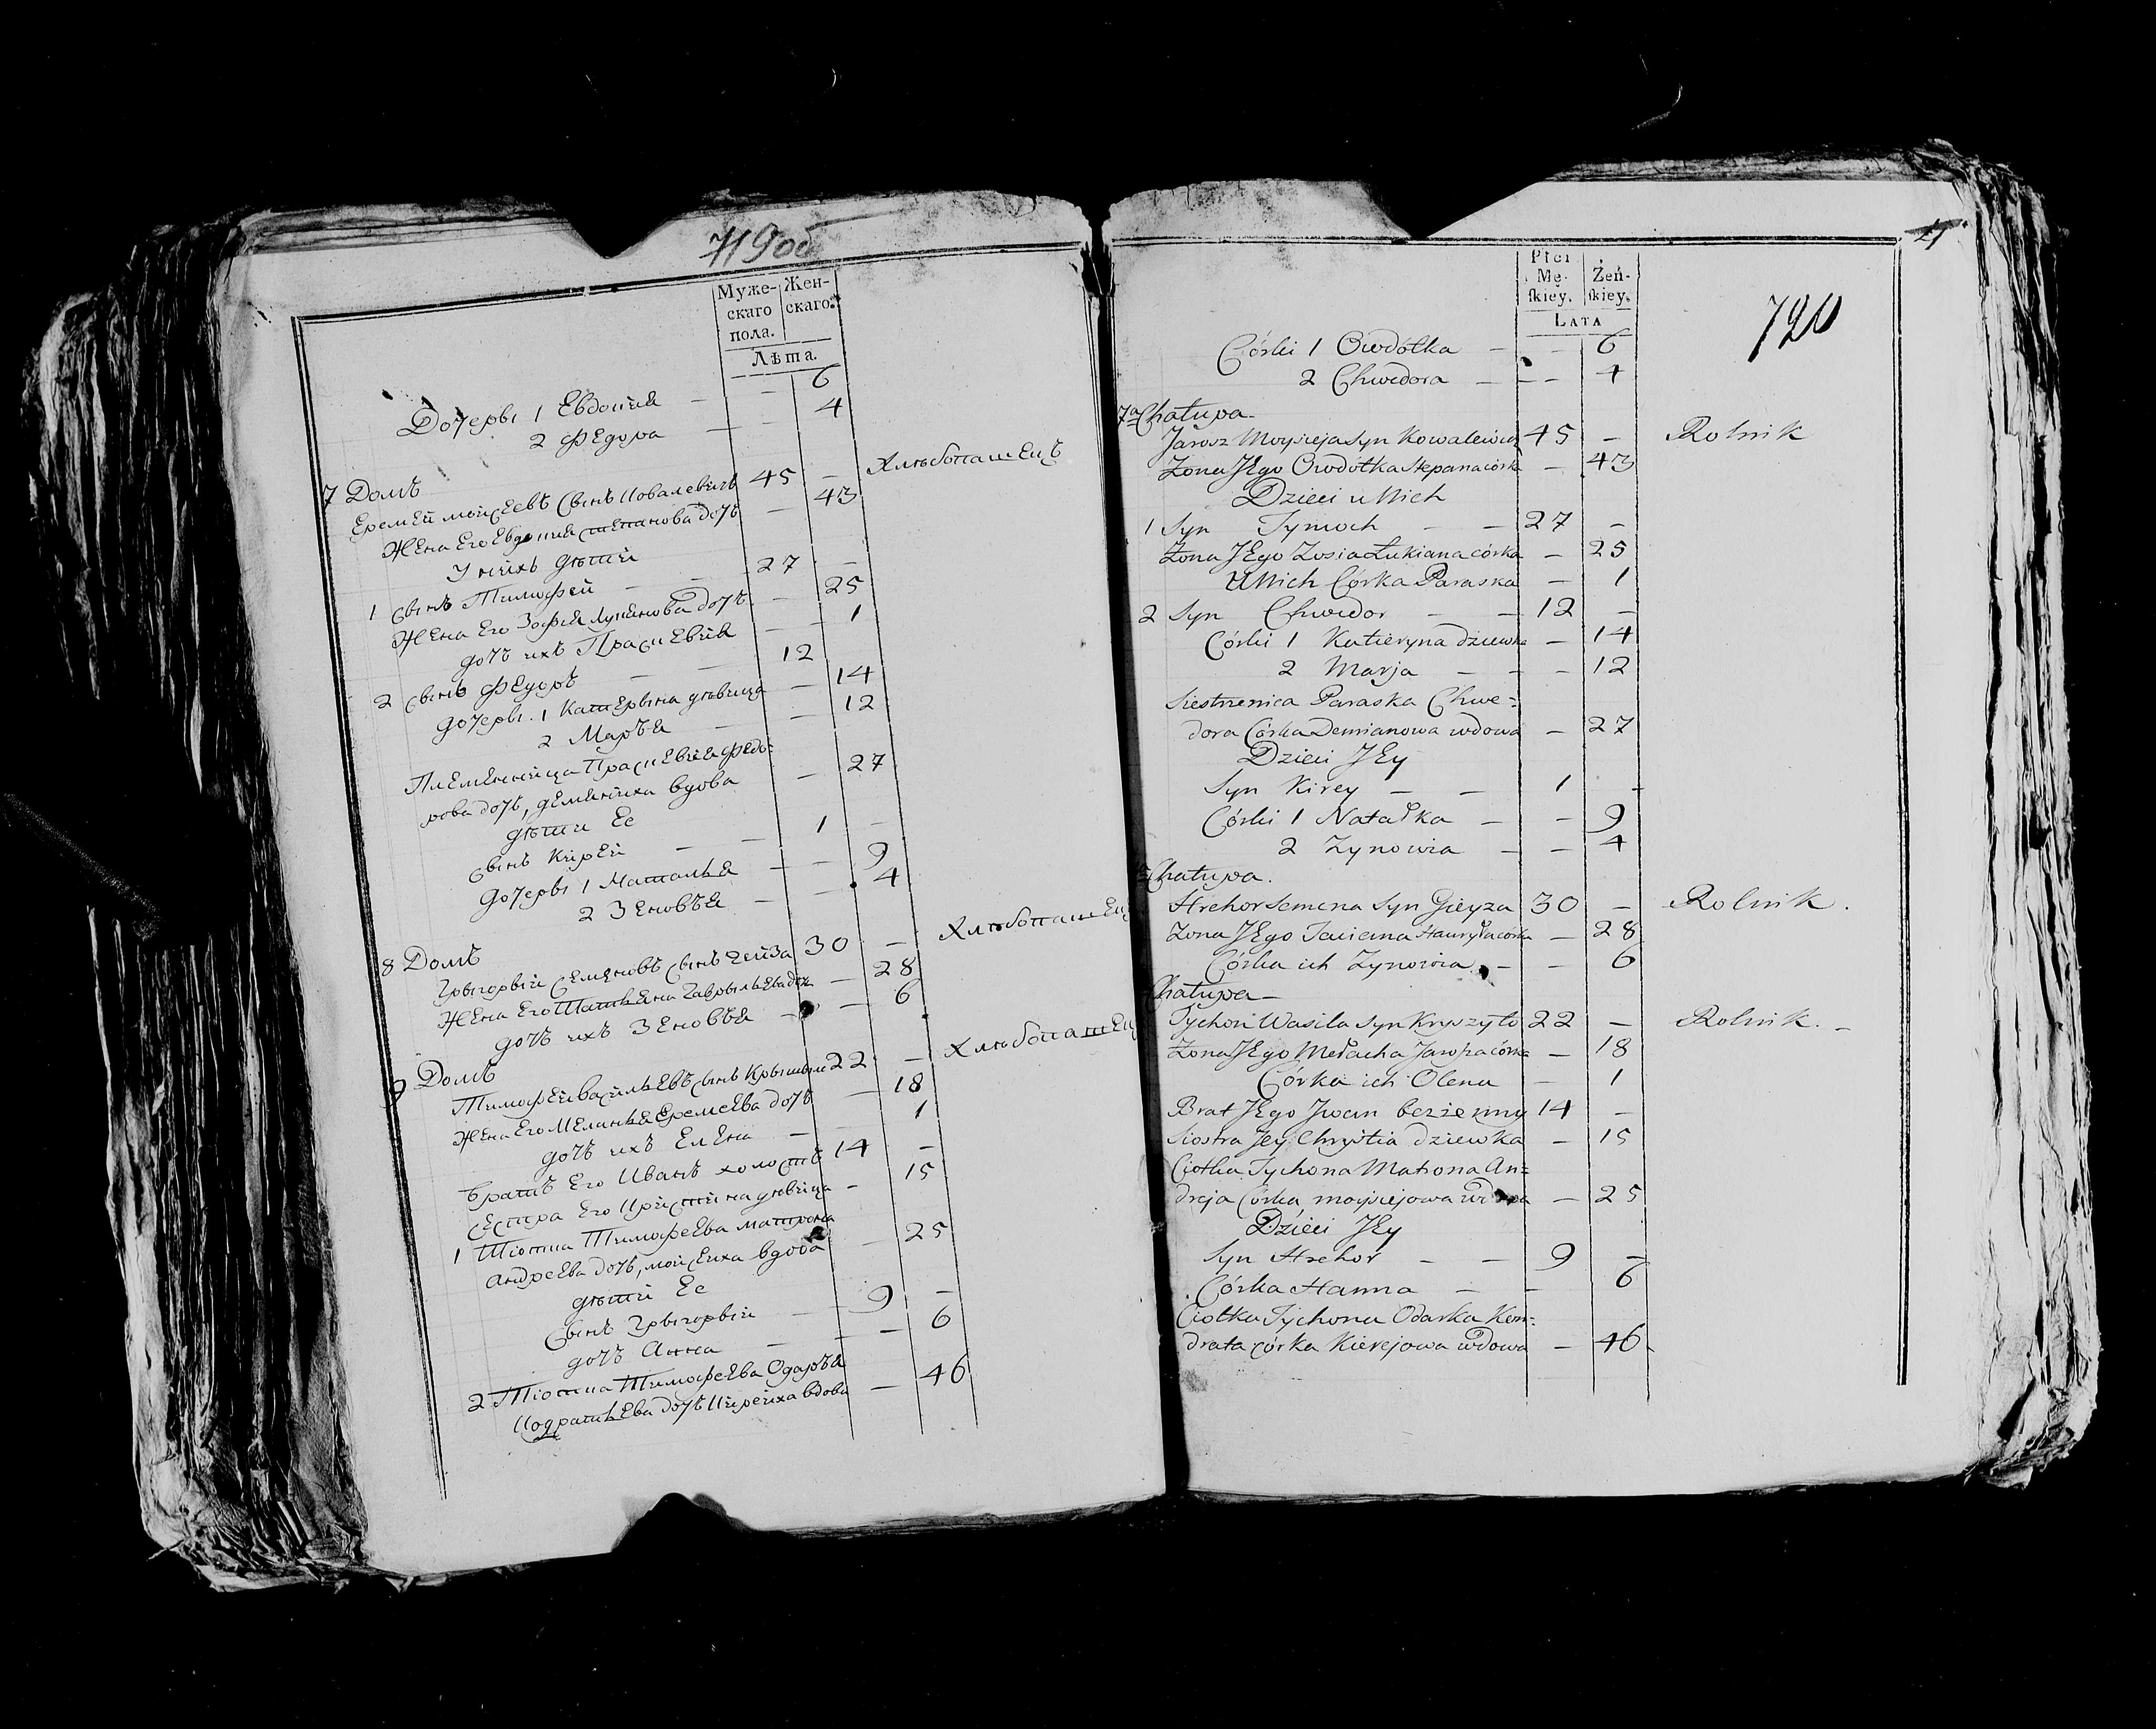 719об
Муже- Жен-
скаго скаго.
пола.
Лѣта.
Дочеры 1 Евдокия — — 6
2 Федора — — 4
7 Домъ
Еремей моисеевъ сынъ Ковалевичъ 45 — Хлѣбопашецъ
Жена Его Евдокия степанова дочь — 43
У нихъ дѣти
1 сынъ Тимофей — 27 —
Жена Его Зофия Лукянова дочь — 25
дочь ихъ Праскевия — 1
2 сынъ Федоръ — 12
дочеры 1 Катерына дѣвица — 14
2 Марья — — 12
Племенница Праскевия Федо-
рова дочь, демяниха вдова — 27
дѣти Ее
сынъ Кирей — 1 —
дочеры 1 Наталья — — 9
2 Зеновья — — 4
8 Домъ
Грыгорый Семеновъ сынъ Гейза 30 — Хлѣбопашец
Жена Его Татьяна Гаврыльева дочь — 28
дочь ихъ Зеновья — — 6
9 Домъ
Тимофей васильевъ сынъ Крышыло 22 — Хлѣбопашец
Жена Его Меланья Еремеева дочь — 18
дочь ихъ Елена — 1
братъ Его Иванъ холостъ 14 —
сестра Его Кристина дѣвица — 15
1 Тіотка Тимофеева матрона
андреева дочь, мойсеиха вдова — 25
дѣти Ее
сынъ Грыгорый — 9 —
дочь Анна — — 6
2 Тіотка Тимофеева Одарья
Кодратьева дочь Кирейха вдова — 46
Płci
Mę- Żeń-
skiey. skiey.
LATA
720
Córki 1 Owdótka — — 6
2 Chwedora — — 4
7a Chałupa.
Jarosz Moysieja syn Kowalewicz 45 — Rolnik
Żona JEgo Owdótka Stepana córka — 43
Dzieci u Nich
1 Syn Tymoch — — 27 —
Żona JEgo Zosia Łukiana córka — 25
U Nich Córka Paraska — 1
2 Syn Chwedor — — 12 —
Córki 1 Katieryna dziewka — 14
2 Marja — — — 12
Siestrzenica Paraska Chwe-
dora Córka Demianowa wdowa — 27
Dzieci JEy
Syn Kirey — — 1 —
Córki 1 Natałka — — 9
2 Zynowia — — 4
Chałupa.
Hrehor Semena Syn Gieyza 30 — Rolnik.
Żona JEgo Taciana Hauryła córka — 28
Córka ich Zynowia — — 6
Chałupa —
Tychon Wasila Syn Kryszyło 22 — Rolnik. —
Żona JEgo Mełacha Jarosza córka — 18
Córka ich Olena — 1
Brat JEgo Jwan bezżenny 14 —
Siostra Jey Chrystia dziewka — 15
Ciotka Tychona Matrona An-
dreja Córka, moysiejowa wdowa — 25
Dzieci JEy
Syn Hrehor — — 9 —
Córka Hanna — — 6
Ciotka Tychona Odarka Kon-
drata córka Kierejowa wdowa — 46